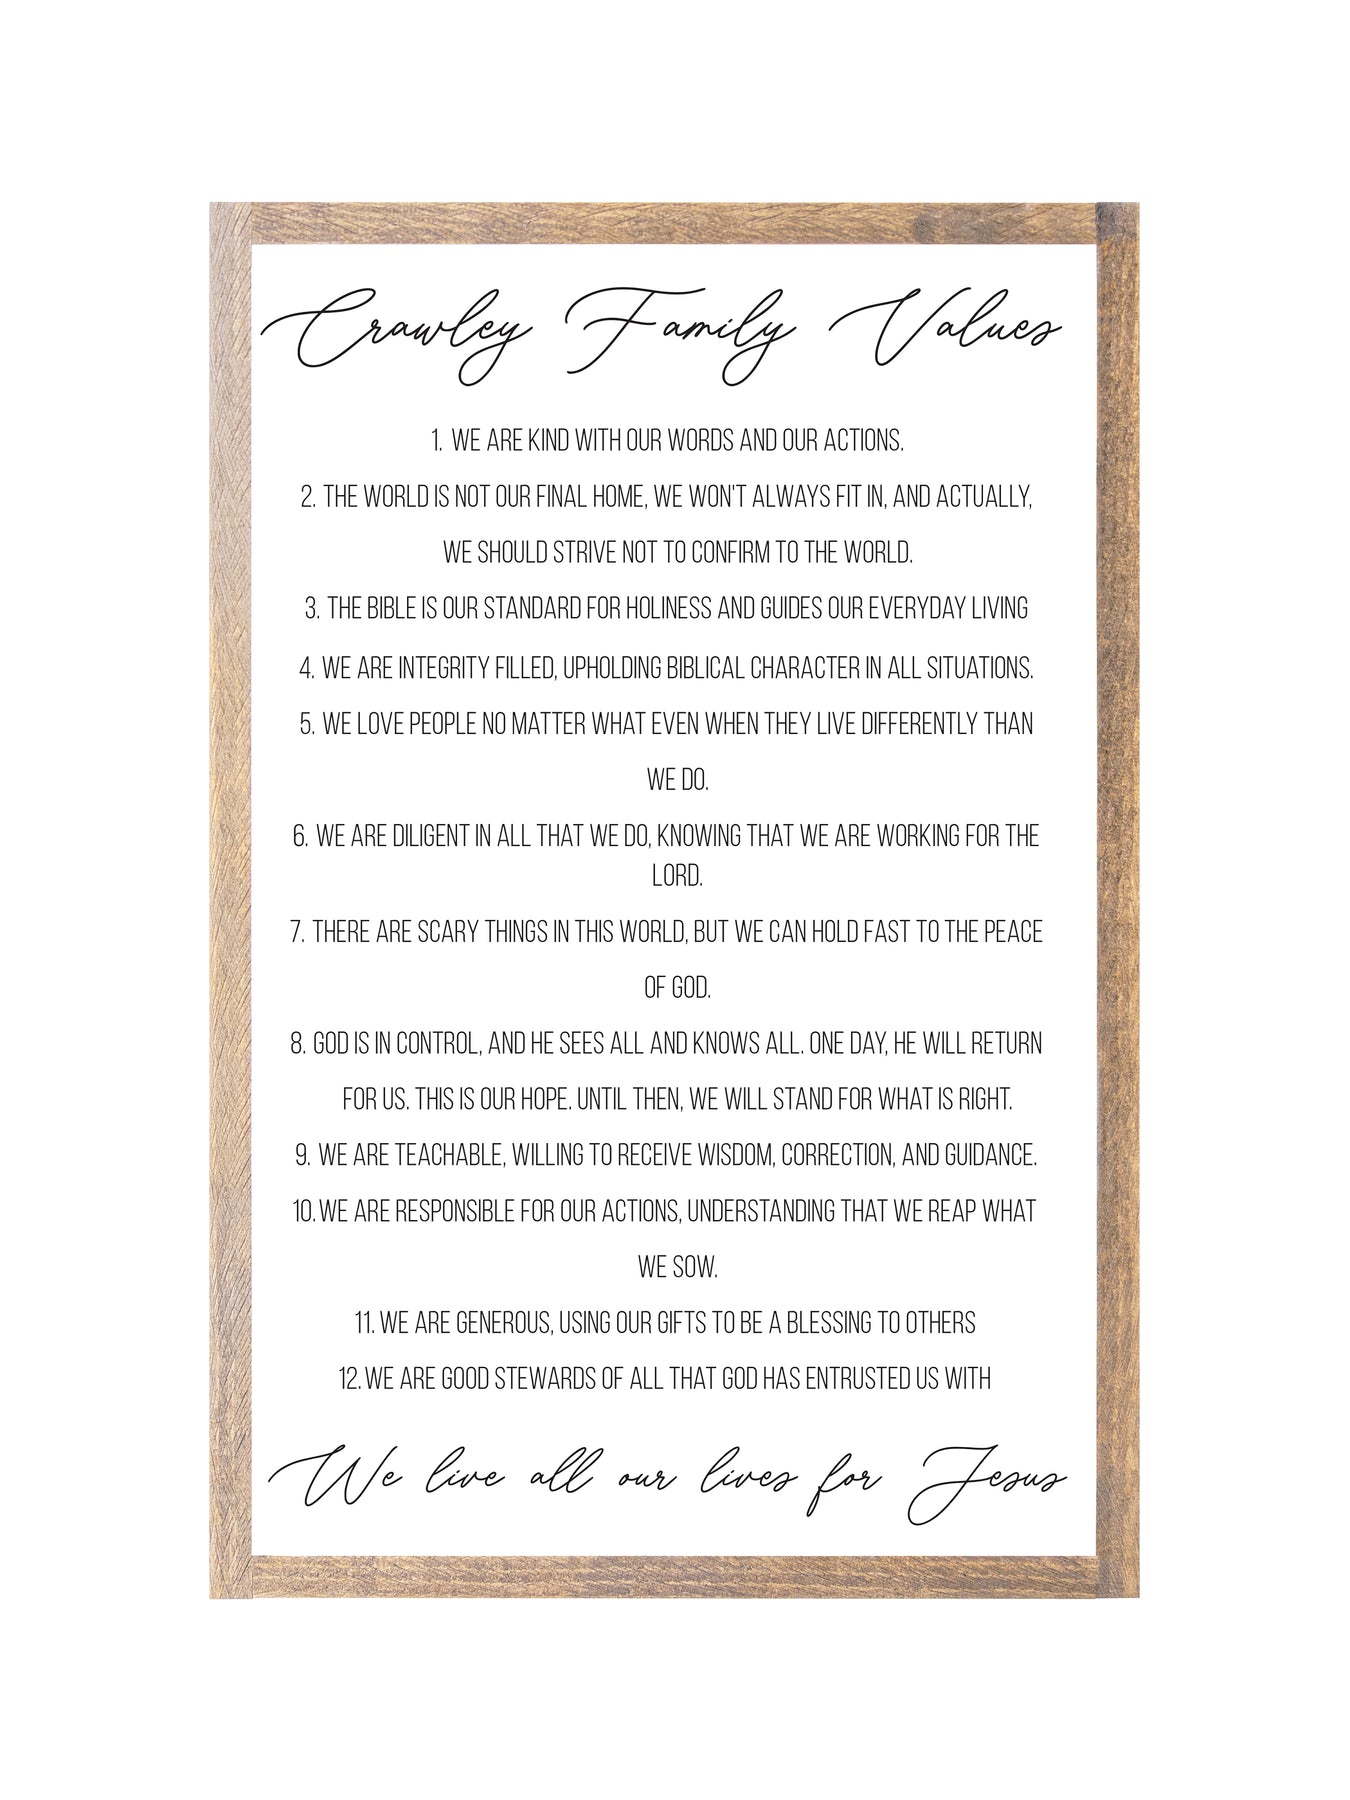 Crawley Family Values
1. WE ARE KIND WITH OUR WORDS AND OUR ACTIONS.
2. THE WORLD IS NOT OUR FINAL HOME, WE WON'T ALWAYS FIT IN, AND ACTUALLY,
WE SHOULD STRIVE NOT TO CONFIRM TO THE WORLD.
3. THE BIBLE IS OUR STANDARD FOR HOLINESS AND GUIDES OUR EVERYDAY LIVING
4. WE ARE INTEGRITY FILLED, UPHOLDING BIBLICAL CHARACTER IN ALL SITUATIONS.
5. WE LOVE PEOPLE NO MATTER WHAT EVEN WHEN THEY LIVE DIFFERENTLY THAN
WE DO.
6. WE ARE DILIGENT IN ALL THAT WE DO, KNOWING THAT WE ARE WORKING FOR THE
LORD.
7. THERE ARE SCARY THINGS IN THIS WORLD, BUT WE CAN HOLD FAST TO THE PEACE
OF GOD.
8. GOD IS IN CONTROL, AND HE SEES ALL AND KNOWS ALL. ONE DAY, HE WILL RETURN
FOR US. THIS IS OUR HOPE. UNTIL THEN, WE WILL STAND FOR WHAT IS RIGHT.
9. WE ARE TEACHABLE, WILLING TO RECEIVE WISDOM, CORRECTION, AND GUIDANCE.
10. WE ARE RESPONSIBLE FOR OUR ACTIONS, UNDERSTANDING THAT WE REAP WHAT
WE SOW.
11. WE ARE GENEROUS, USING OUR GIFTS TO BE A BLESSING TO OTHERS
12. WE ARE GOOD STEWARDS OF ALL THAT GOD HAS ENTRUSTED US WITH
We live all our lives for Jesus